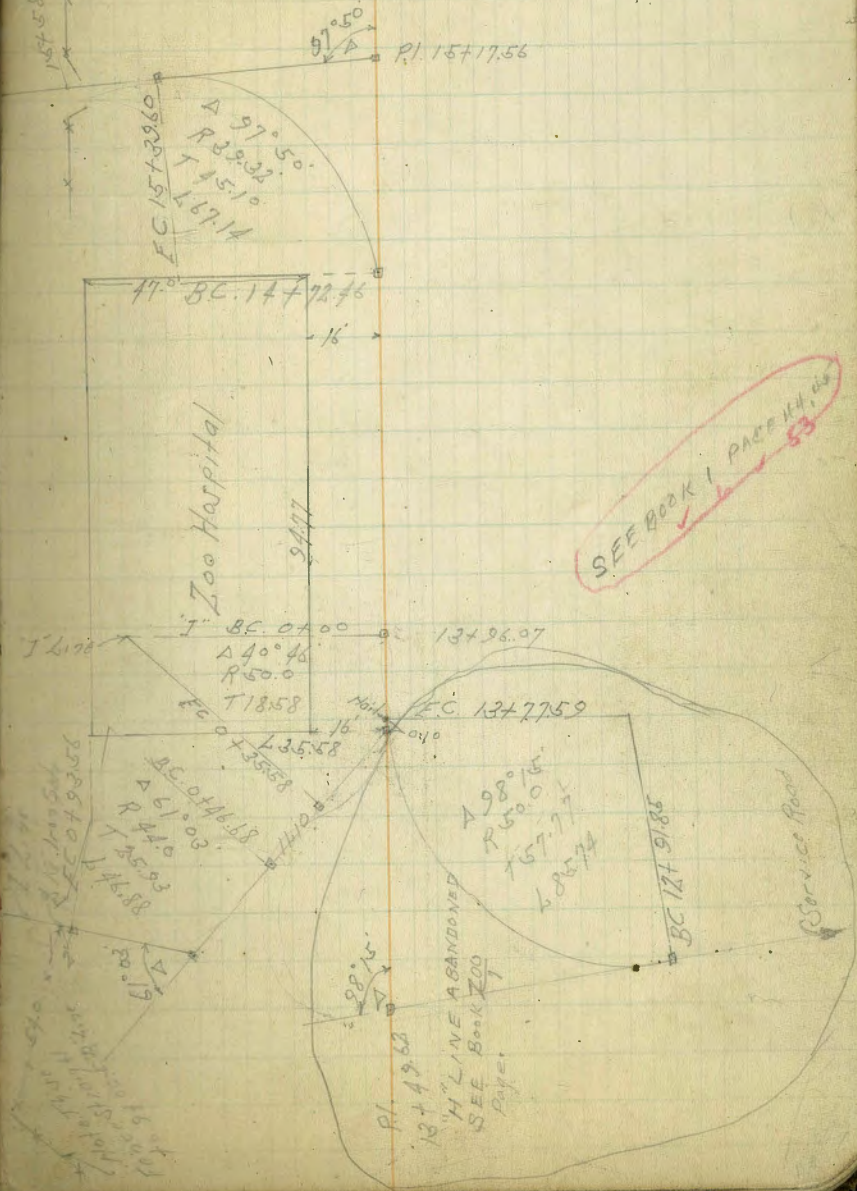 15+50
97°50'
Δ
P.I. 15+17.56
E.C. 15+39.60
Δ 97°50'
R 39.32
T 45.10
L 67.14
47.0 B.C. 14+72.46
16'
Zoo Hospital
94.77
SEE BOOK 1 PAGE 44
53
"J" B.C. 0+00
13+96.07
Δ 40°46
R 50.0
T 18.58
L 35.58
E.C. 0+35.58
16'
Nail
E.C. 13+77.59
B.C. 0+46.68
Δ 61°03
R 44.0
L 46.88
E.C. 0+93.56
11.10
Δ 98°15'
R 50.0
T 57.77
L 85.74
B.C. 12+91.85
Service Road
61°03
Δ
98°15'
Δ
P.I. 13+49.62
"H" LINE ABANDONED
SEE BOOK ZOO
1
Page.